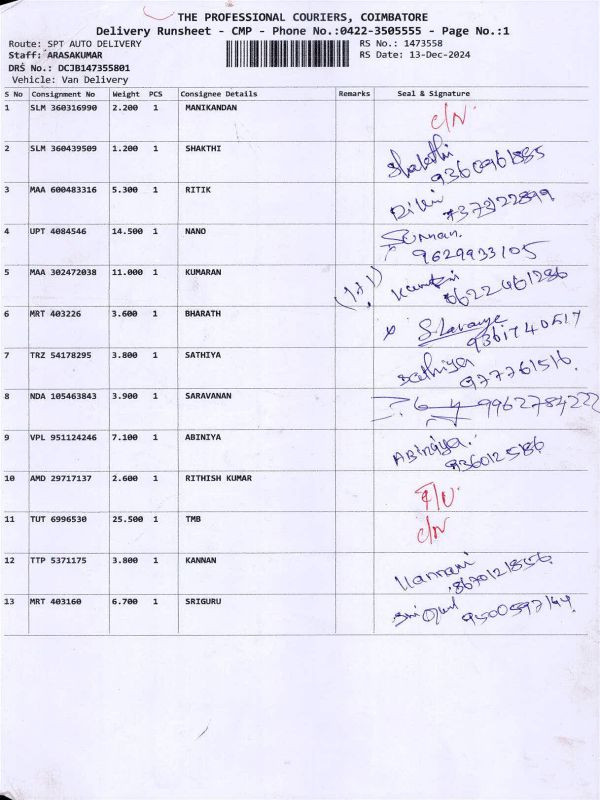 THE PROFESSIONAL COURIERS, COIMBATORE
Delivery Runsheet - CMP - Phone No.:0422-3505555 - Page No.:1
Route: SPT AUTO DELIVERY RS No.: 1473558
Staff: ARASAKUMAR RS Date: 13-Dec-2024
DRS No.: DCJB147355801
Vehicle: Van Delivery
S No Consignment No Weight PCS Consignee Details Remarks Seal & Signature
1 SLM 360316990 2.200 1 MANIKANDAN C/N
2 SLM 360439509 1.200 1 SHAKTHI Shakthi
9360961885
3 MAA 600483316 5.300 1 RITIK
7373122899
4 UPT 4084546 14.500 1 NANO
9629933105
5 MAA 302472038 11.000 1 KUMARAN (1+1)
6 MRT 403226 3.600 1 BHARATH
9361740517
7 TRZ 54178295 3.800 1 SATHIYA Sathiya
977761516
8 NDA 105463843 3.900 1 SARAVANAN 9962784222
9 VPL 951124246 7.100 1 ABINIYA Abinaya.
10 AMD 29717137 2.600 1 RITHISH KUMAR
11 TUT 6996530 25.500 1 TMB C/N
12 TTP 5371175 3.800 1 KANNAN
8670121856
13 MRT 403160 6.700 1 SRIGURU
9500597144